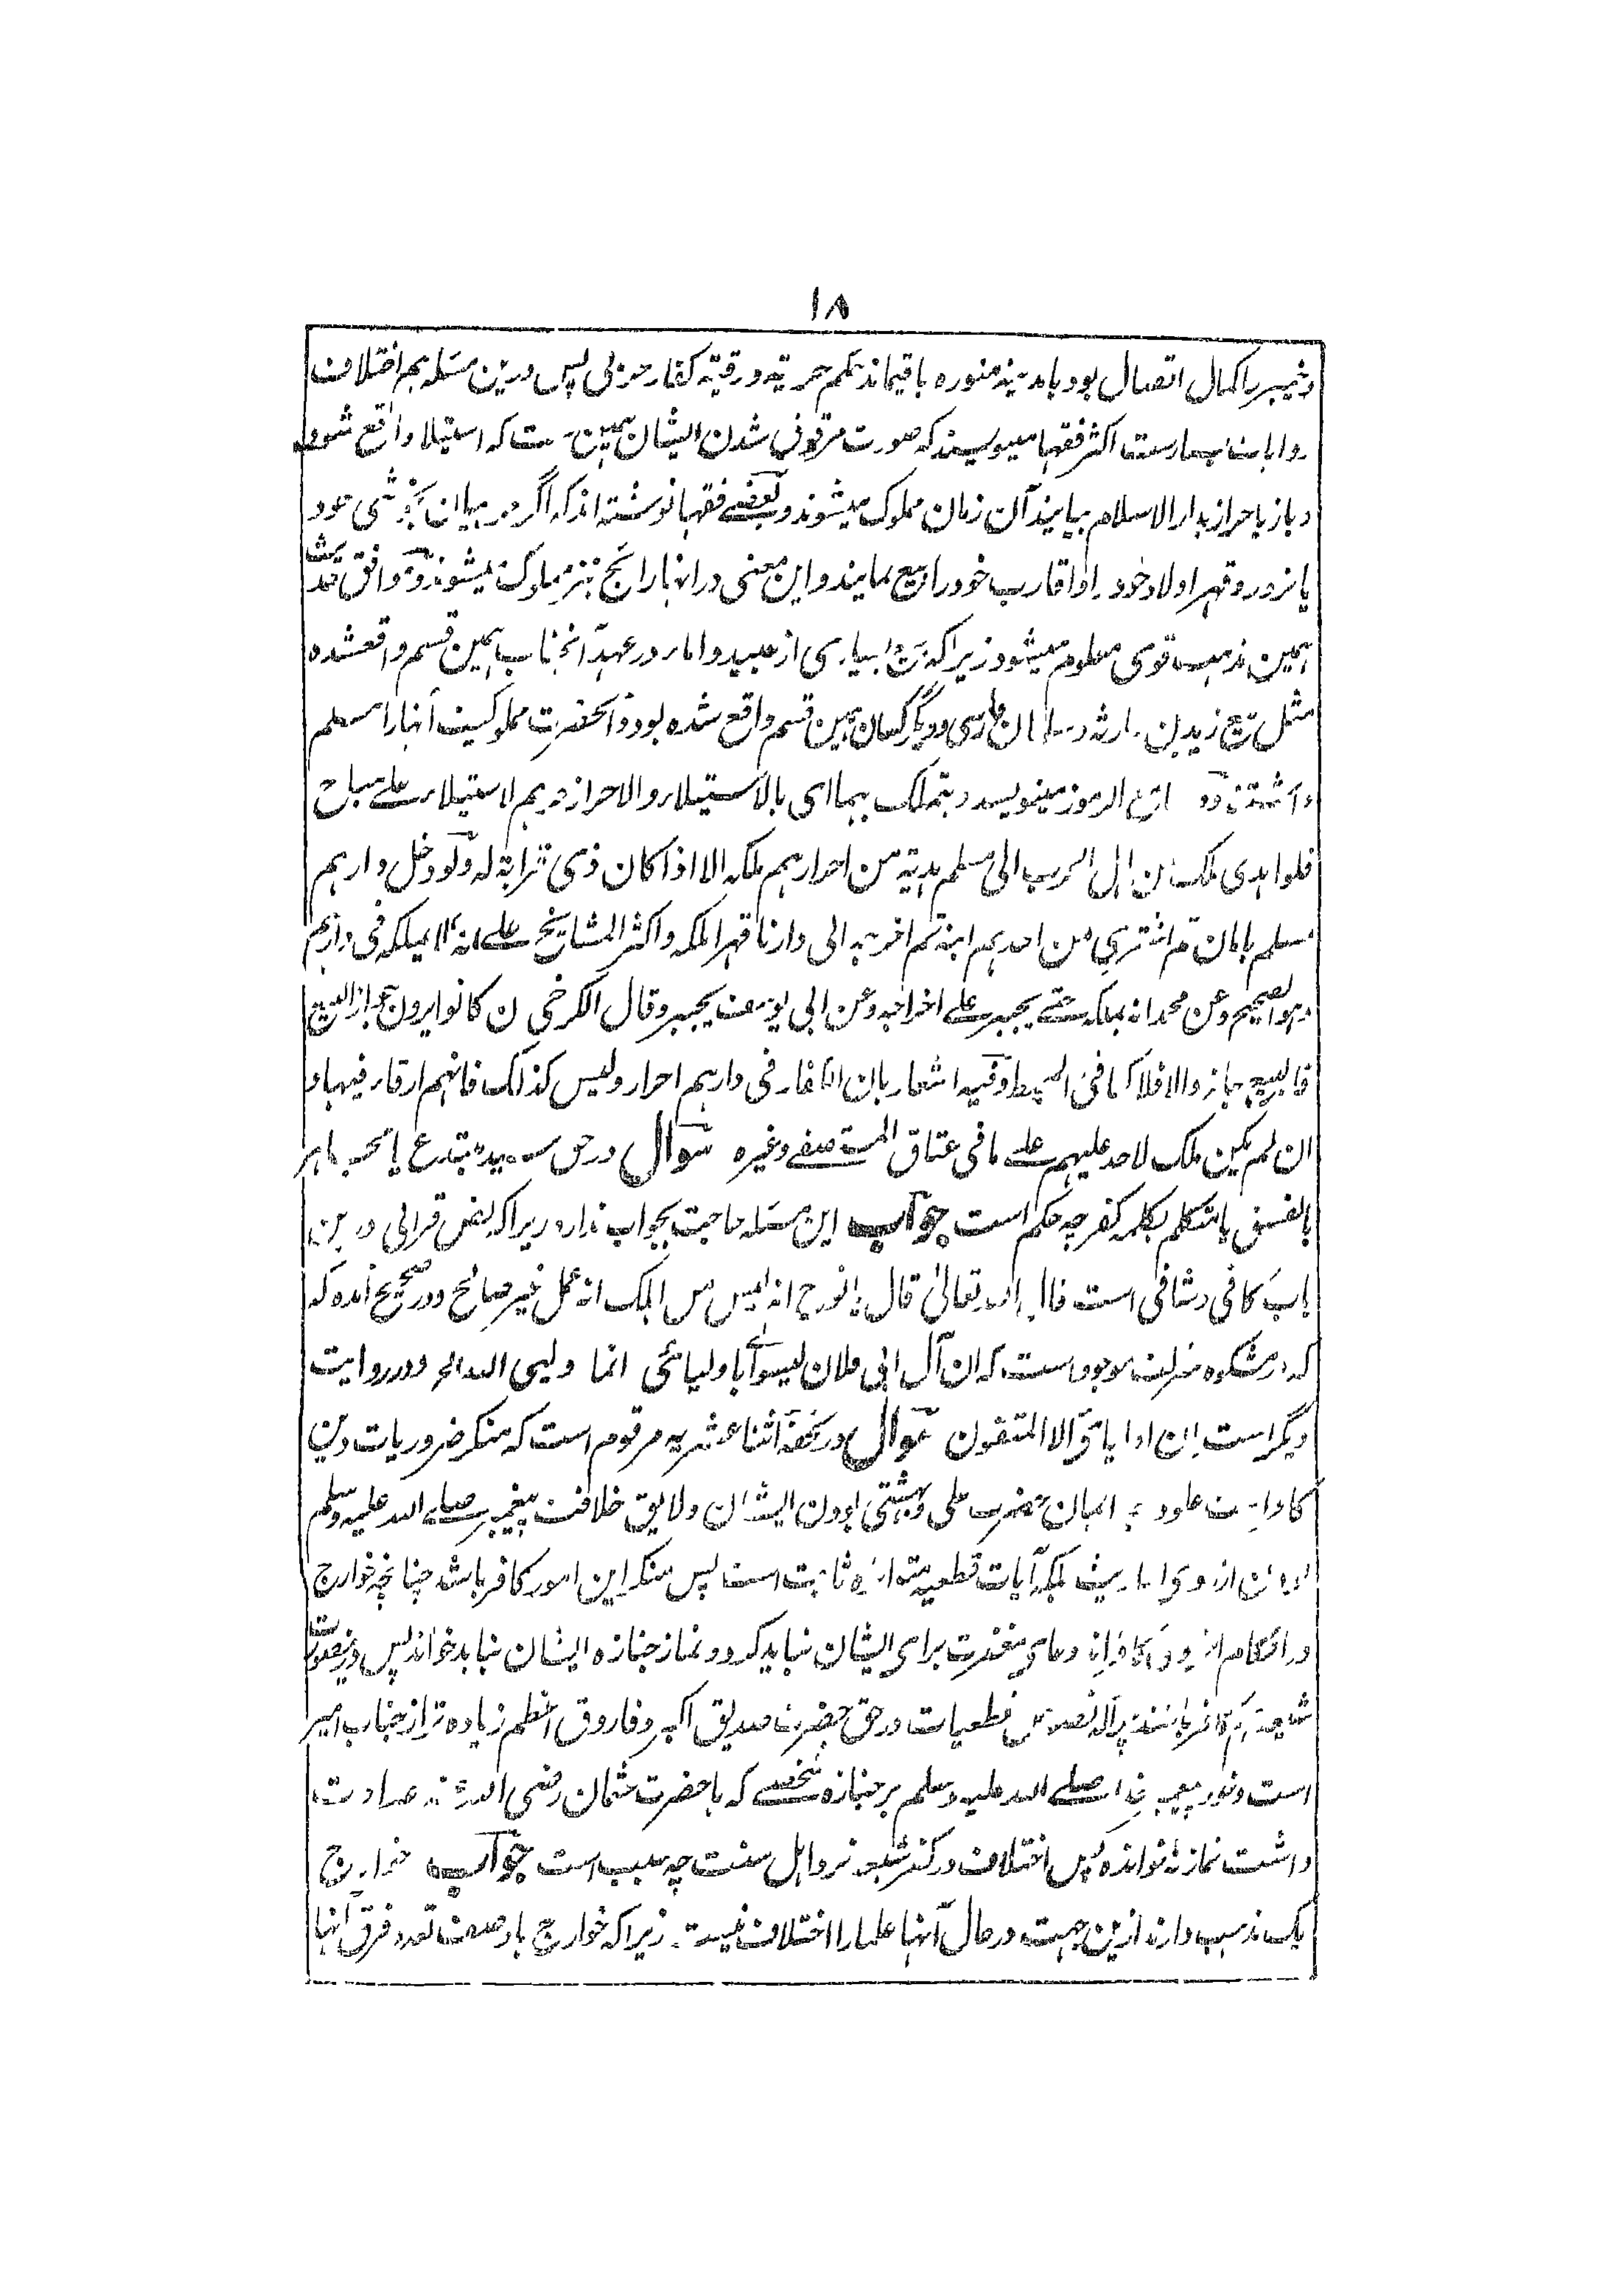 ۱۸
وخیبر را کمال اتصال بود با مدینه منوره باقیماند حکم حریة ورقیة کفار حربی پس درین مسئله هم اختلاف
روایات بسیارست اکثر فقها مینویسند که صورت مرقوق شدن ایشان همین ست که استیلا واقع شود
وباز باحراز بدار الاسلام بیایند آن زمان مملوک میشوند وبعضے فقها نوشته اند که اگر حربیان بخوشی خود
یا بزور وقهر اولاد خود را واقارب خود را بیع نمایند واین معنی در آنها رائج نیز مملوک میشوند وموافق
همین مذهب قوی معلوم میشود زیرا که بیع بسیاری از عبید واماء در عهد آنجناب بهمین قسم واقعشده
مثل بیع زید بن حارثه وسلمان فارسی ودیگر کسان بهمین قسم واقع شده بود وآنحضرت مملوکیت آنها را مسلم
داشتند ودر الرموز مینویسد ویتملک بهما ای بالاستیلاء والاحراز حریهم لاستیلاء علے مباح
فلو اهدی ملک من اهل الحرب الی مسلم هدیة من احرارهم ملکه الا اذا کان ذی قرابة له ولو دخل دارهم
مسلم بامان ثم اشتری من احدهم ابنه ثم اخرجه الی دارنا قهرا ملکه واکثر المشایخ علے انه لا یملکه فی دارهم
وهو الصحیح وعن محمد انه یملکه حتے یجبر علے اخراجه وعن ابی یوسف یجبر وقال الکرخی ان کانوا یرون جواز البیع
فالبیع جائز والا فلا کما فی المحیط وفیه اشعار بان الکفار فی دارهم احرار ولیس کذلک فانهم ارقاء فیها و
ان لم یکن ملک لاحد علیهم علے ما فی عتاق المستصفے وغیره سوال در حق سید مبتدع یا مجاهر
بالفسق یا متکلم بکلمه کفر چه حکم است جواب این مسئله حاجت بجواب ندارد زیرا که نص قرانی درین
باب کافی وشافی است قال الله تعالیٰ قال یا نوح انه لیس من اهلک انه عمل غیر صالح ودر صحیح آمده که
که در مشکوه شریف موجود است که ان آل ابی فلان لیسوا با ولیائی انما ولیی الله الخ ودر روایت
دیگر است ان اولیائی الا المتقون سوال در تحفه اثنا عشریه مرقوم است که منکر ضروریات دین
کافر است علو درجه ایمان حضرت علی وبهشتی بودن ایشان ولایق خلافت پیغمبر صلے الله علیه وسلم
بودن از روی احادیث بلکه آیات قطعیه متواتره ثابت است پس منکر این امور کافر باشد چنانچه خوارج
در احکام اخروی کافراند دعای مغفرت برای ایشان نباید کرد ونماز جنازه ایشان نباید خواند پس درینصورت
شیعه هم کافر باشند چرا که نصوص قطعیات در حق حضرت صدیق اکبر وفاروق اعظم زیاده تر از جناب امیر
است وخود پیغمبر خدا صلے الله علیه وسلم بر جنازه شخصے که با حضرت عثمان رضی الله عنه عداوت
داشت نماز نخوانده پس اختلاف در کفر شیعه نزد اهل سنت چه سبب است جواب خوارج
یک مذهب دارند ازین جهت در حال آنها علما را اختلاف نیست زیرا که خوارج با وصف تعدد فرق آنها